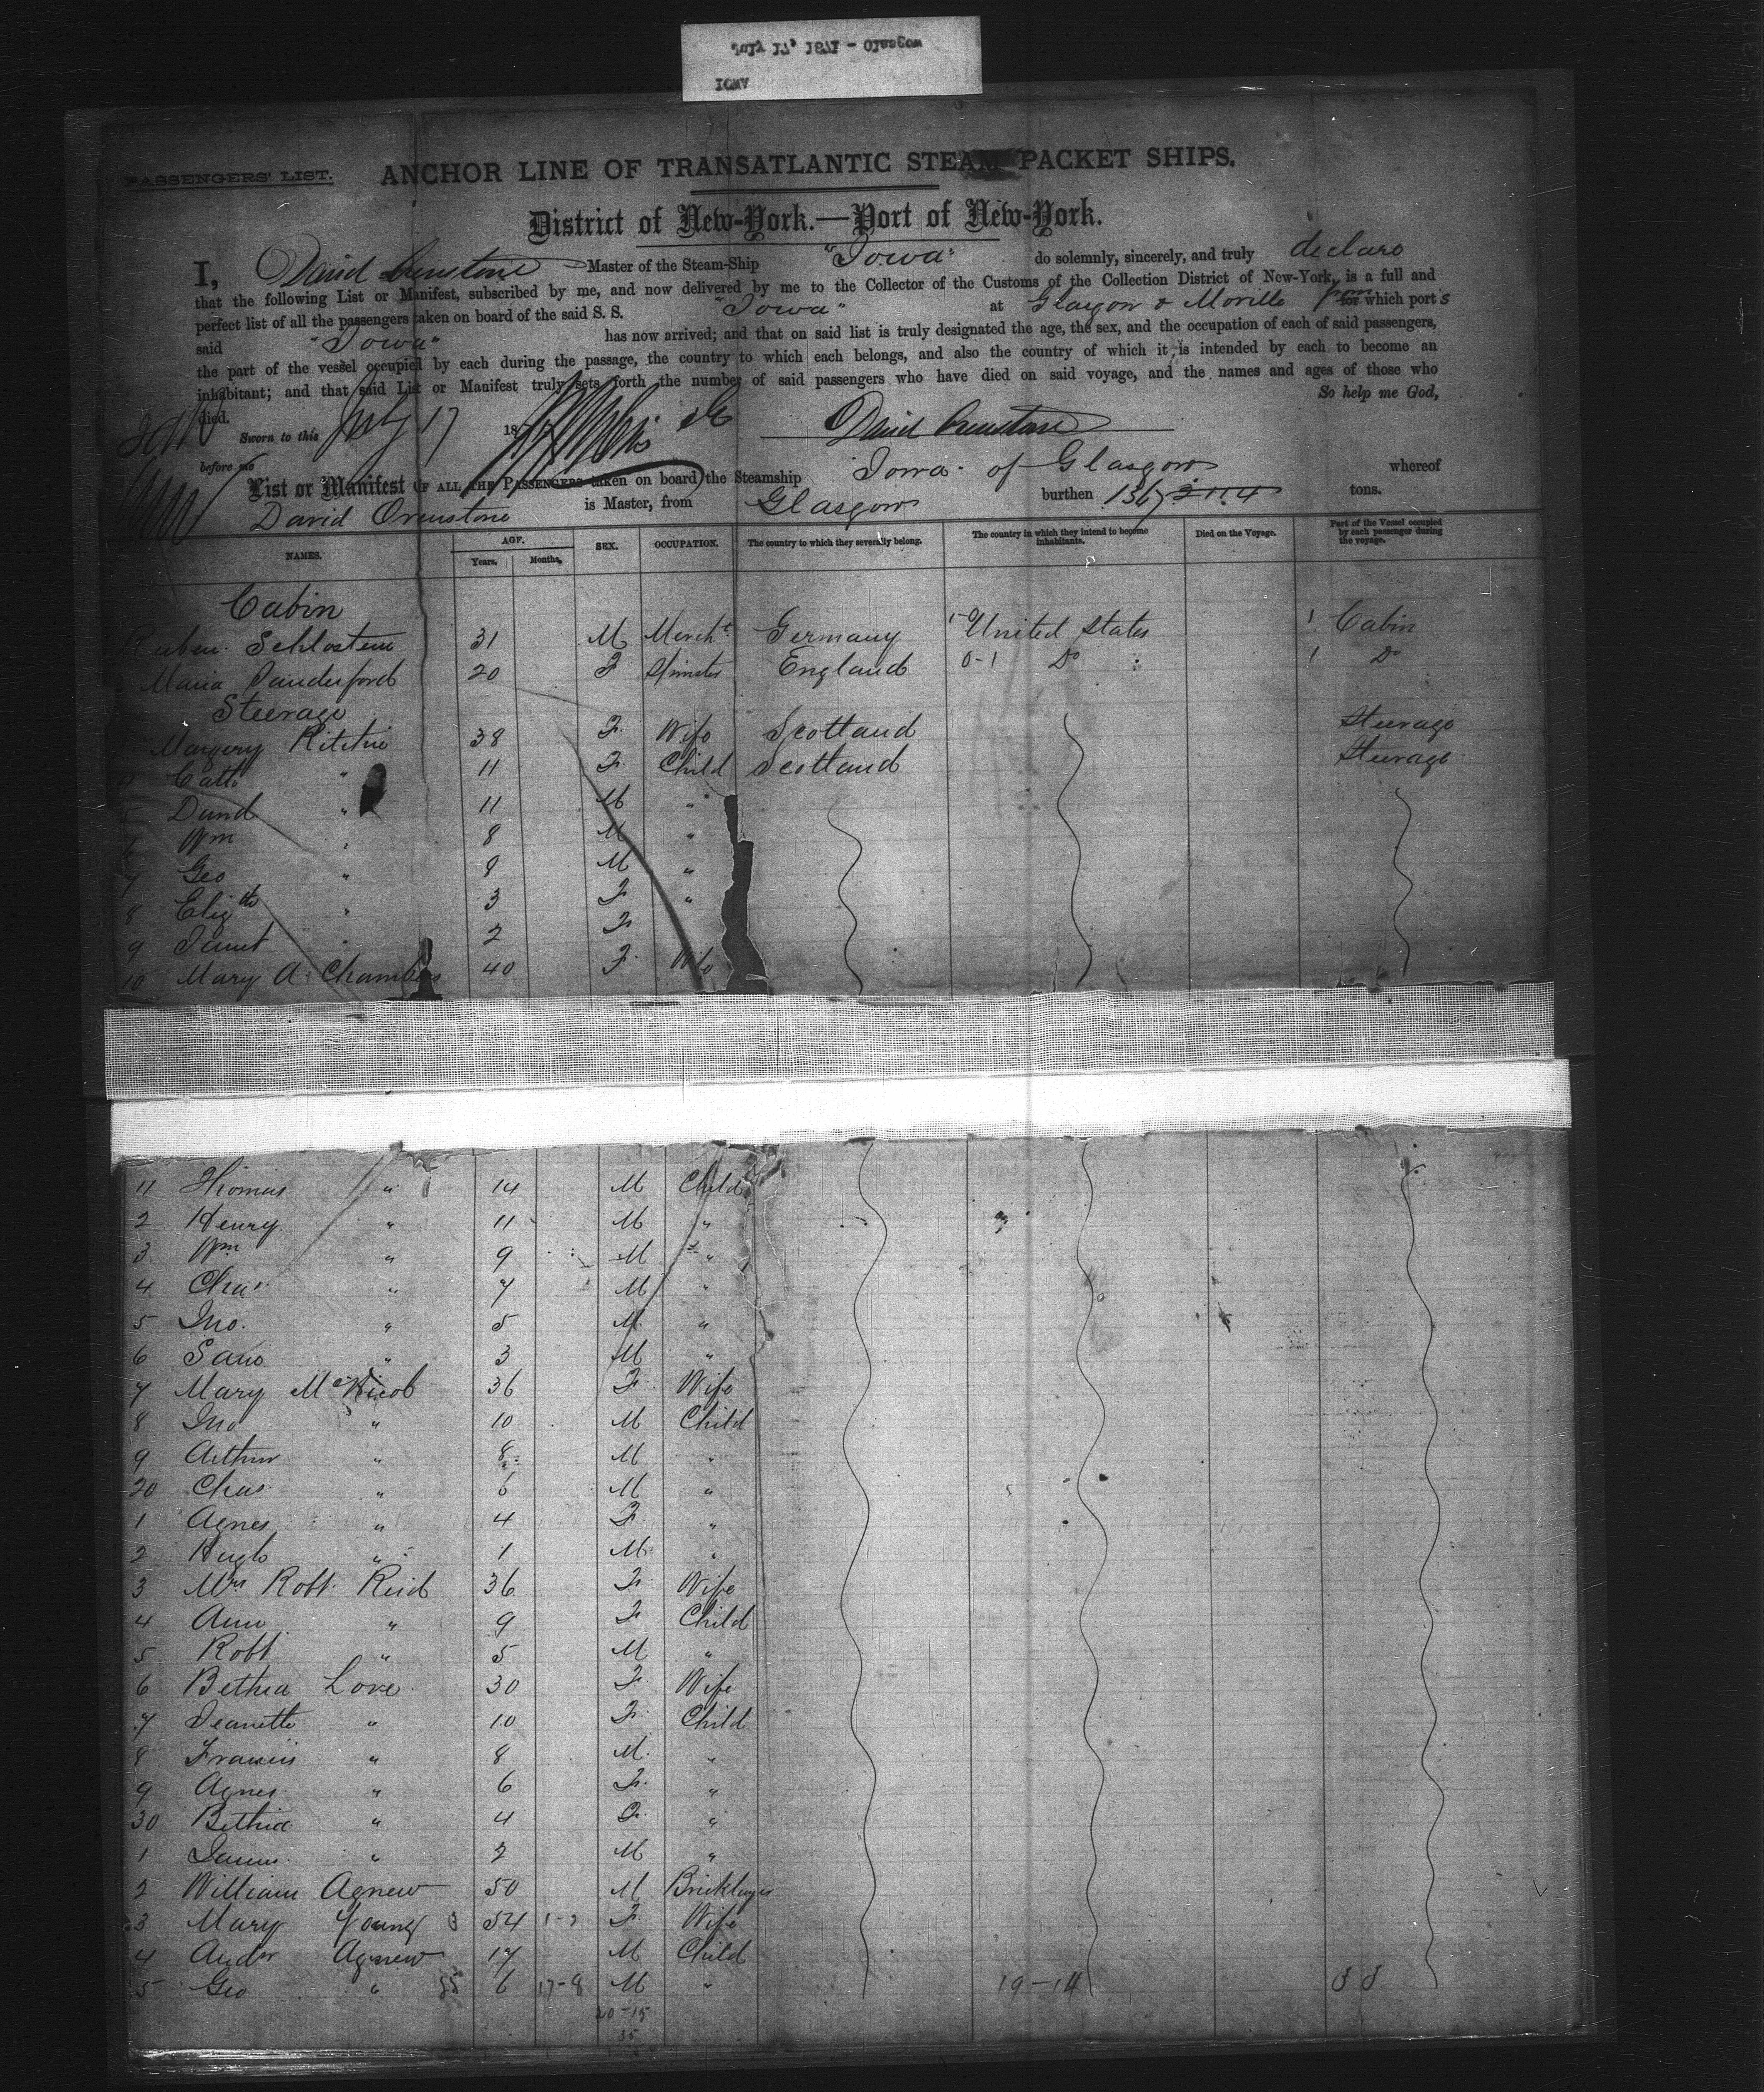 IOWA
July 17, 1871 - Glasgow
PASSENGERS' LIST.
ANCHOR LINE OF TRANSATLANTIC STEAM PACKET SHIPS.
District of New-York.—Port of New-York.
I, David Ovenstone Master of the Steam-Ship "Iowa" do solemnly, sincerely, and truly declare
that the following List or Manifest, subscribed by me, and now delivered by me to the Collector of the Customs of the Collection District of New-York, is a full and
perfect list of all the passengers taken on board of the said S. S. "Iowa" at Glasgow & Moville from which ports
said "Iowa" has now arrived; and that on said list is truly designated the age, the sex, and the occupation of each of said passengers,
the part of the vessel occupied by each during the passage, the country to which each belongs, and also the country of which it is intended by each to become an
inhabitant; and that said List or Manifest truly sets forth the number of said passengers who have died on said voyage, and the names and ages of those who
died. So help me God,
Sworn to this July 17 18 David Ovenstone
before me
List or Manifest OF ALL THE PASSENGERS taken on board the Steamship Iowa of Glasgow whereof
David Ovenstone is Master, from Glasgow burthen 1367 tons.
NAMES. AGE. Years. Months. SEX. OCCUPATION. The country to which they severally belong. The country in which they intend to become inhabitants. Died on the Voyage. Part of the Vessel occupied by each passenger during the voyage.
Cabin
Ruben Schlostein 31 M Mercht Germany United States 1 Cabin
Maria Vanderford 20 F Spinster England 0-1 Do 1 Do
Steerage
Margery Ritchie 38 F Wife Scotland Steerage
4 Cath " 11 F Child Scotland Steerage
5 David " 11 M "
6 Wm " 8 M "
7 Geo " 8 M "
8 Elizth " 3 F "
9 Janet " 2 F
10 Mary A. Chambers 40 F Wife
11 Thomas " 14 M Child
2 Henry " 11 M "
3 Wm " 9 M "
4 Chas " 7 M "
5 Jno. " 5 M "
6 " 3 M "
7 Mary McNicol 36 F Wife
8 Jno " 10 M Child
9 Arthur " 8 M "
20 Chas " 6 M "
1 Agnes " 4 F "
2 Hugh " 1 M "
3 Mrs Robt. Reid 36 F Wife
4 Ann " 9 F Child
5 Robt " 5 M "
6 Bethea Love 30 F Wife
7 Jeanette " 10 F Child
8 Francis " 8 M "
9 Agnes " 6 F "
30 Bethia " 4 F "
1 James " 2 M "
2 William Agnew 50 M Bricklayer
3 Mary Young 54 F Wife
4 Andr Agnew 17 M Child
5 Geo " 35 6 17-8 M " 19-14
20-15
35